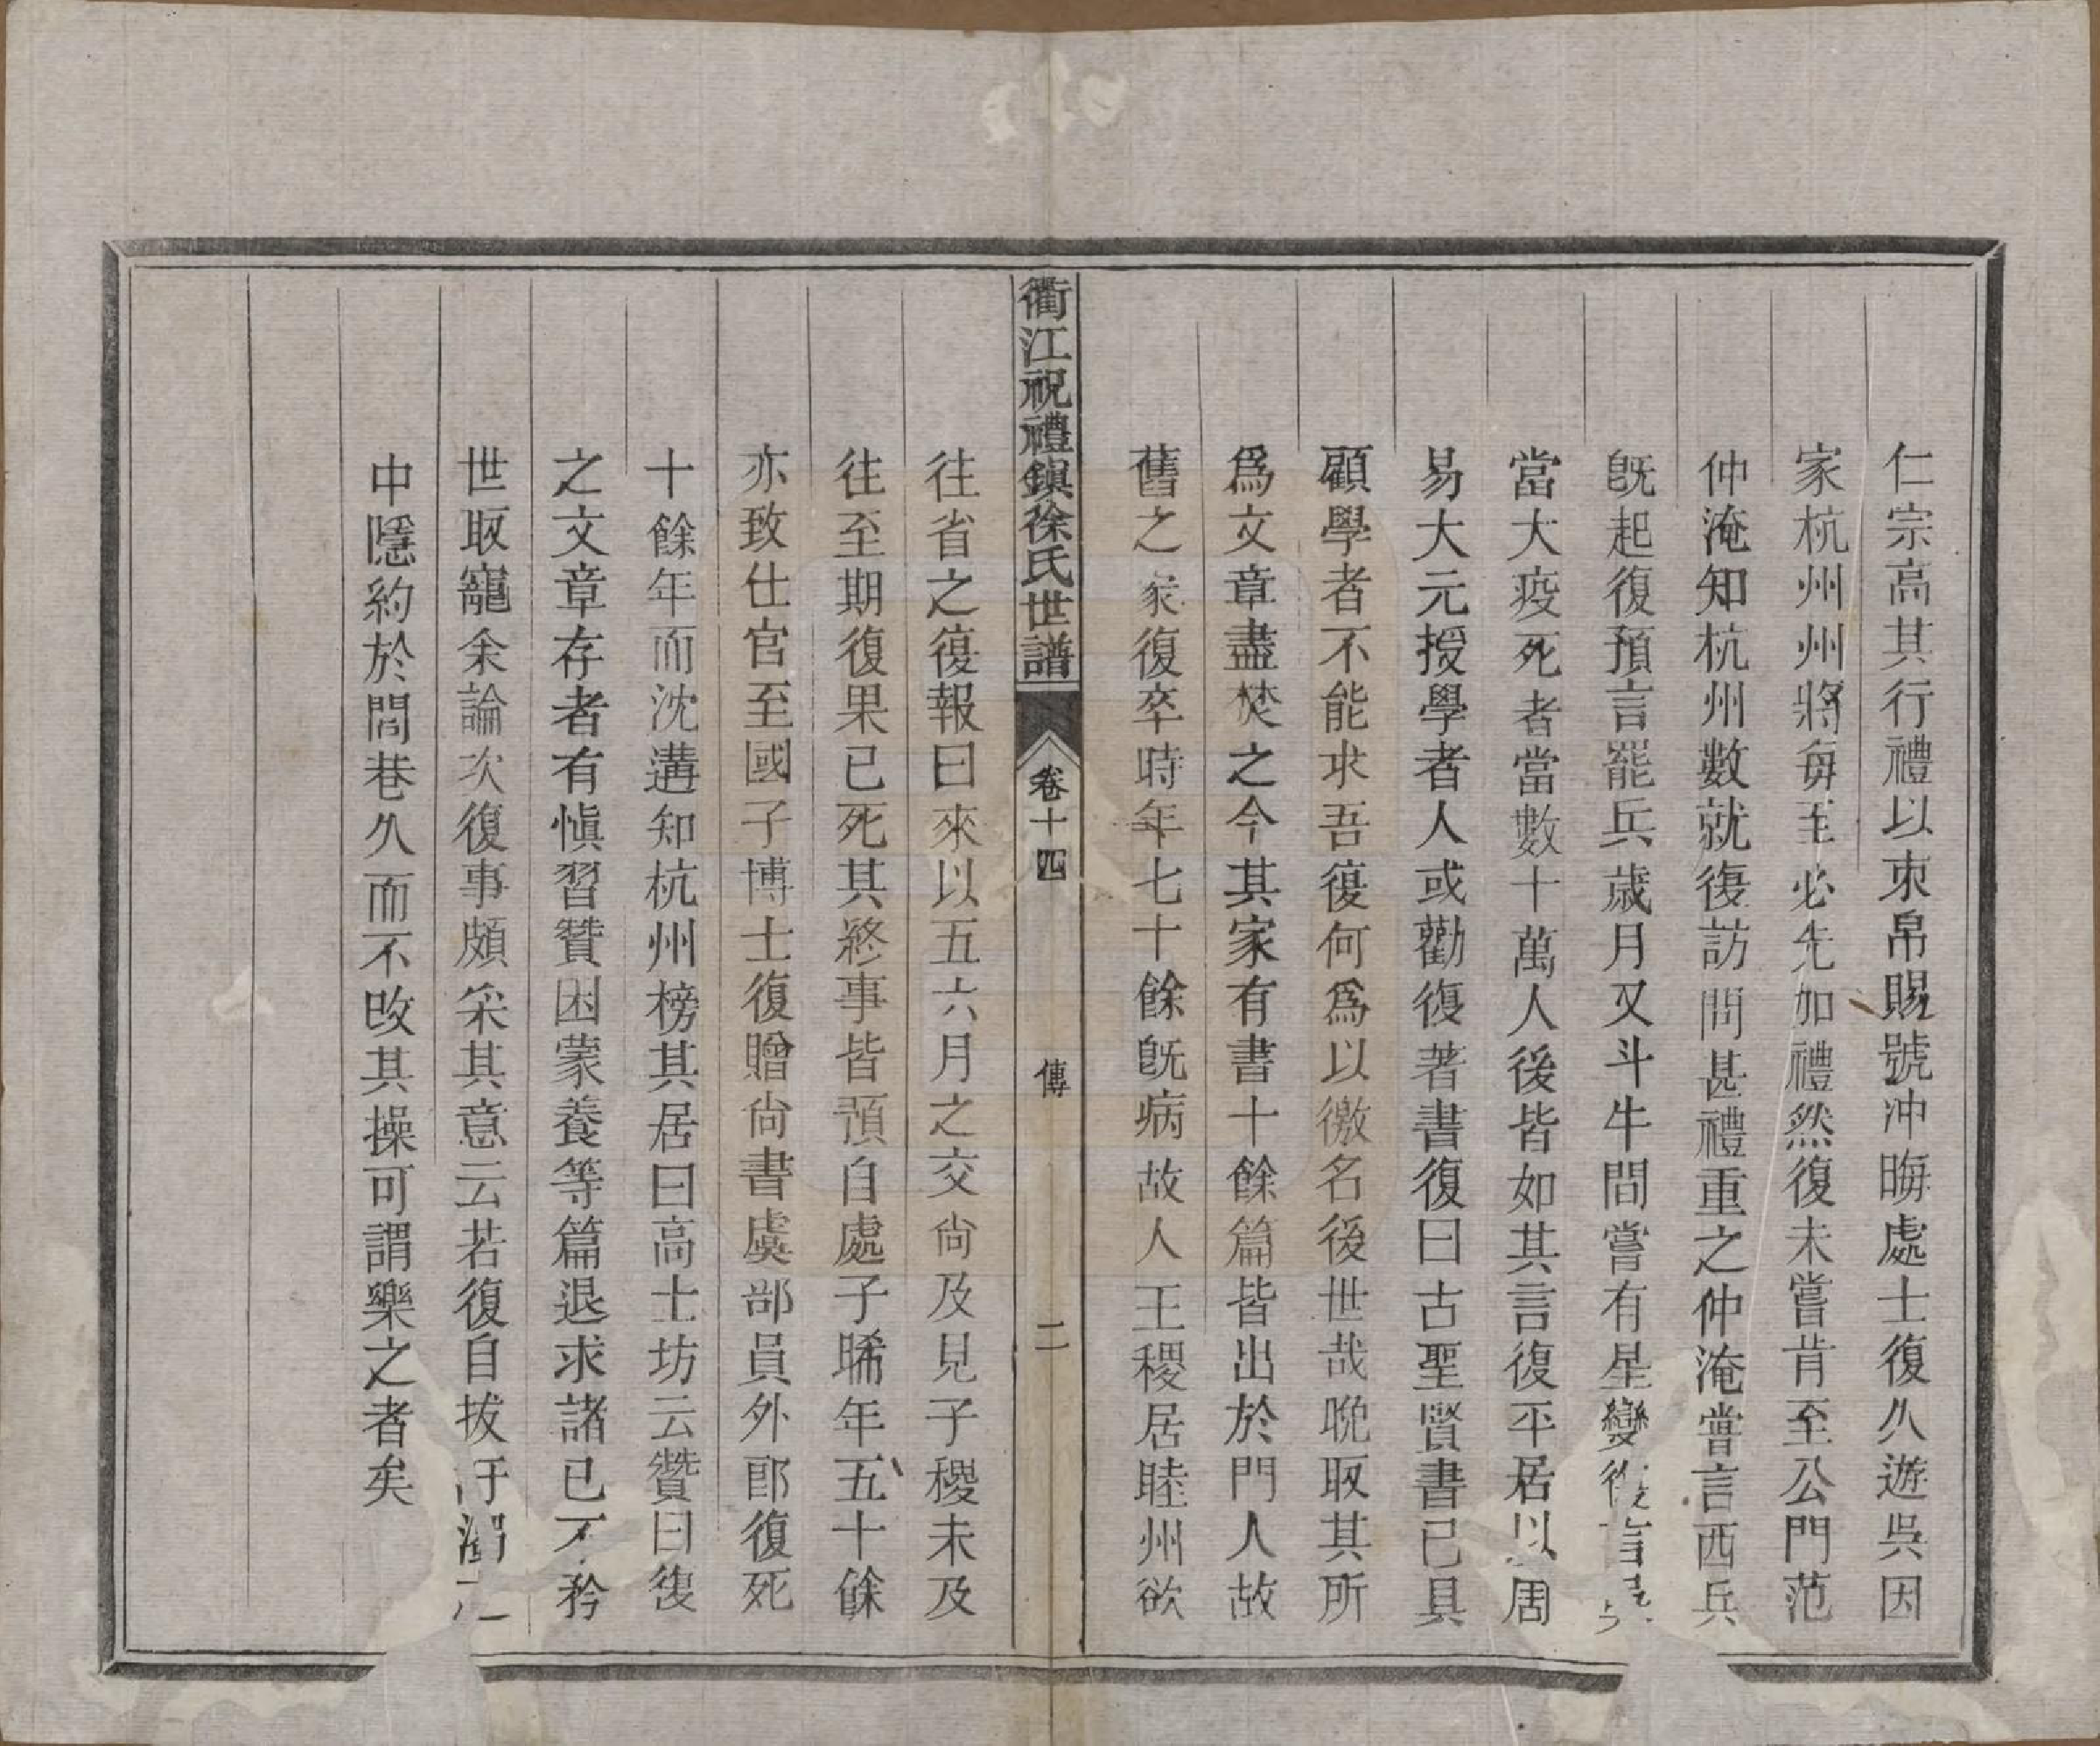 仁宗高其行禮以束帛賜號沖晦處士復久遊吳因
家杭州州將每至必先加禮然復未嘗肯至公門范
仲淹知杭州數就復訪問甚禮重之仲淹嘗言西兵
旣起復預言罷兵歲月又斗牛間嘗有星變復言
當大疫死者當數十萬人後皆如其言復平居以周
易大元授學者人或勸復著書復曰古聖賢書已具
顧學者不能求吾復何爲以徼名後世哉晚取其所
爲文章盡焚之今其家有書十餘篇皆出於門人故
舊之家復卒時年七十餘旣病故人王稷居睦州欲
衢江祝禮鎭徐氏世譜 卷十四 傳 二
往省之復報曰來以五六月之交尙及見子稷未及
往至期復果已死其終事皆預自處子晞年五十餘
亦致仕官至國子博士復贈尙書虞部員外郎復死
十餘年而沈遘知杭州榜其居曰高士坊云贊曰復
之文章存者有愼習贊困蒙養等篇退求諸己不矜
世取寵余論次復事頗采其意云若復自拔汙濁之
中隱約於閭巷久而不改其操可謂樂之者矣